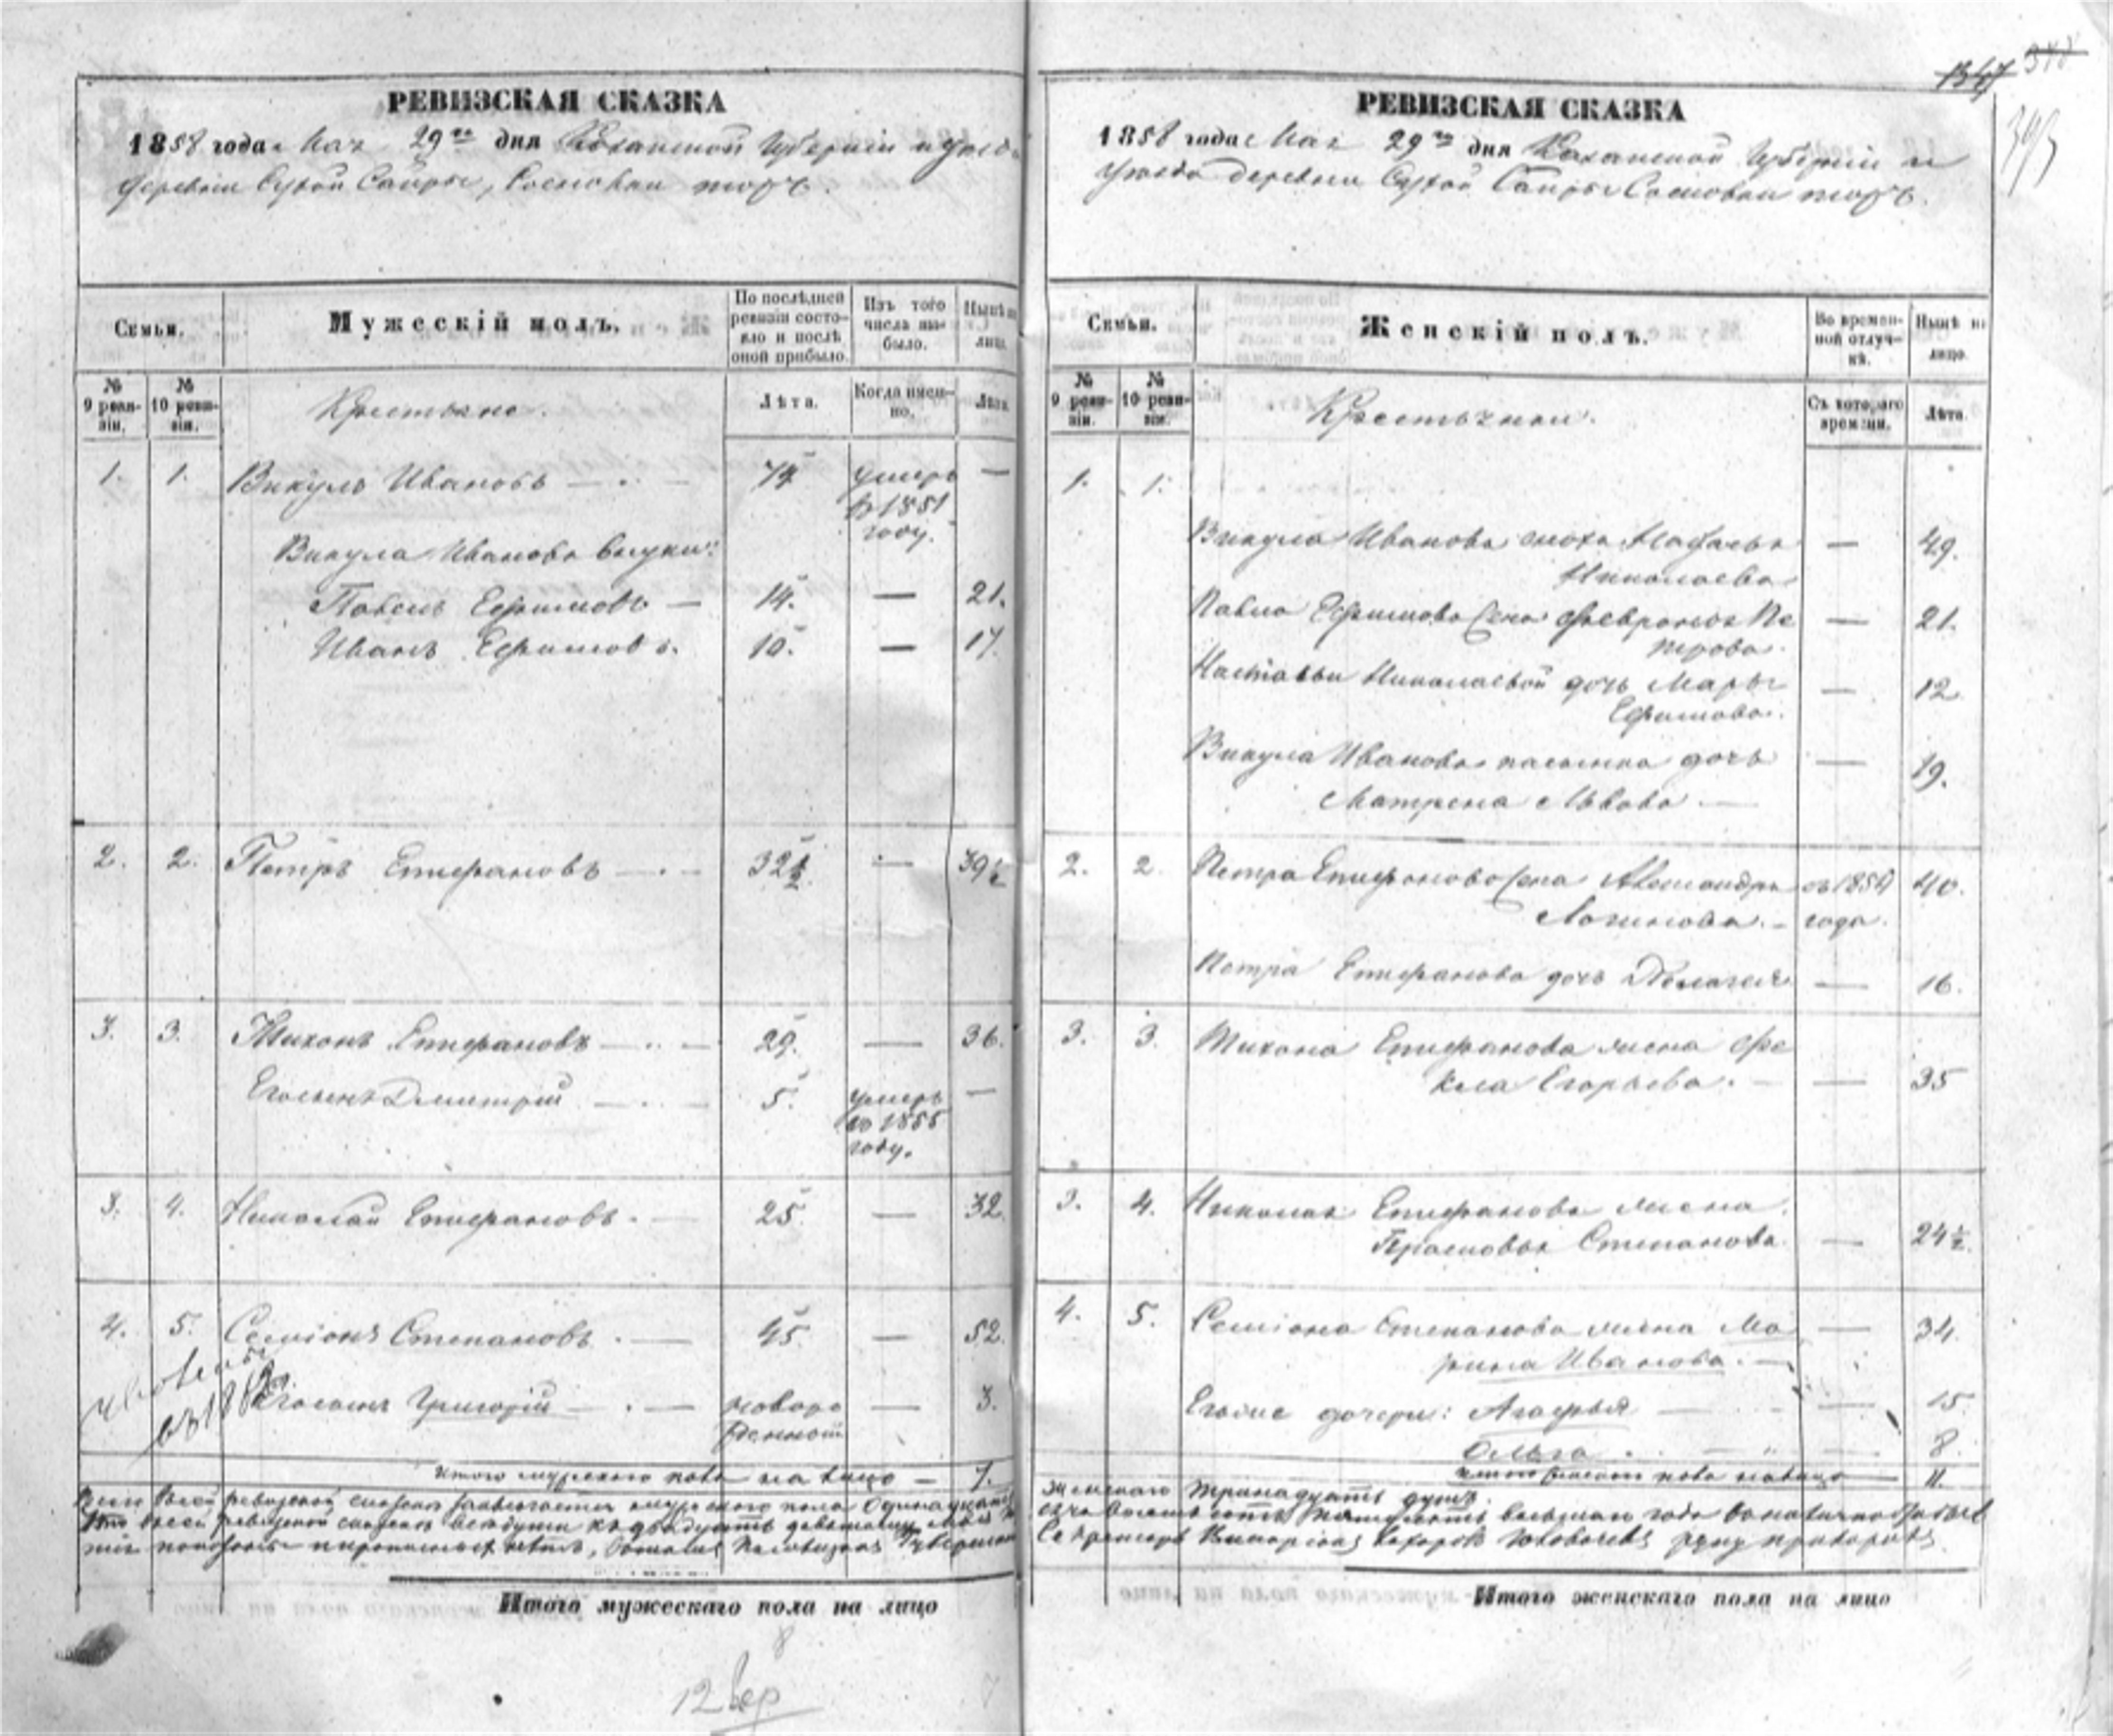 РЕВИЗСКАЯ СКАЗКА
1858 года Мая 29го дня Казанской Губернии и уезда
деревни Сухой Сайры, Сосновки тож.
Семьи.
Мужескій полъ.
По послѣдней ревизіи состояло и послѣ оной прибыло.
Изъ того числа выбыло.
Нынѣ на лицо.
№ 9 ревизіи.
№ 10 ревизіи.
Крестьяне.
Лѣта.
Когда именно.
Лѣта.
1. 1. Викулъ Ивановъ — 74 умеръ —
в 1851
году.
Викула Иванова внуки:
Павелъ Ефимовъ — 14. — 21.
Иванъ Ефимовъ. 10. — 17.
2. 2. Петръ Епифановъ — 32½ — 39½
3. 3. Тихонъ Епифановъ — 29. — 36.
Его сынъ Дмитрій — 5. умеръ —
в 1855
году.
3. 4. Николай Епифановъ. — 25. — 32.
4. 5. Семіонъ Степановъ. — 45. — 52.
Его сынъ Григорій — новоро — 3.
жденной
Итого мужеского пола на лицо — 7.
Итого мужескаго пола на лицо
12 вер
РЕВИЗСКАЯ СКАЗКА
1858 года Мая 29го дня Казанской Губернии и
уезда деревни Сухой Сайры Сосновки тож.
Семьи.
Женскій полъ.
Во временной отлучкѣ.
Нынѣ на лицо.
№ 9 ревизіи.
№ 10 ревизіи.
Крестьянки.
Съ котораго времени.
Лѣта.
1. 1.
Викула Иванова сноха Настасья — 49.
Николаева
Павла Ефимова жена Февронья Пе — 21.
трова.
Настасьи Николаевой дочь Марья — 12.
Ефимова.
Викула Иванова пасынка дочь — 19.
Матрена Львова —
2. 2. Петра Епифанова жена Александра съ 1854 40.
Логинова. — года.
Петра Епифанова дочь Пелагея — 16.
3. 3. Тихона Епифанова жена Фе
кла Егорьева. — 35
3. 4. Николая Епифанова жена
Парасковья Степанова — 24½
4. 5. Семіона Степанова жена Ма — 34.
рина Иванова. —
Его же дочери: Агафья — 15
Ольга — 8.
Итого женского пола на лицо 11.
женского тринадцать душъ.
Итого женскаго пола на лицо